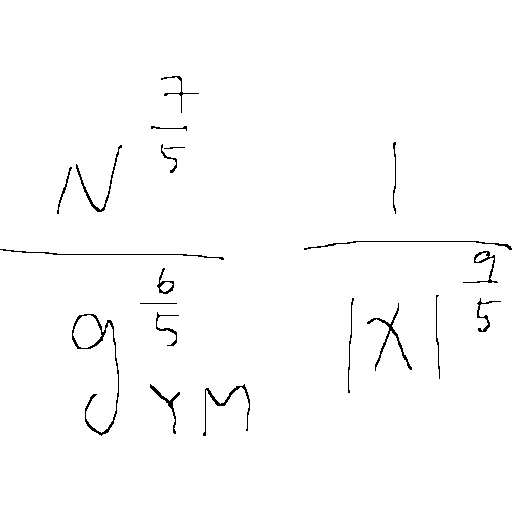 \frac{N^{\frac{7}{5}}}{g_{YM}^{\frac{6}{5}}} \frac{1}{|x|^{\frac{9}{5}}}